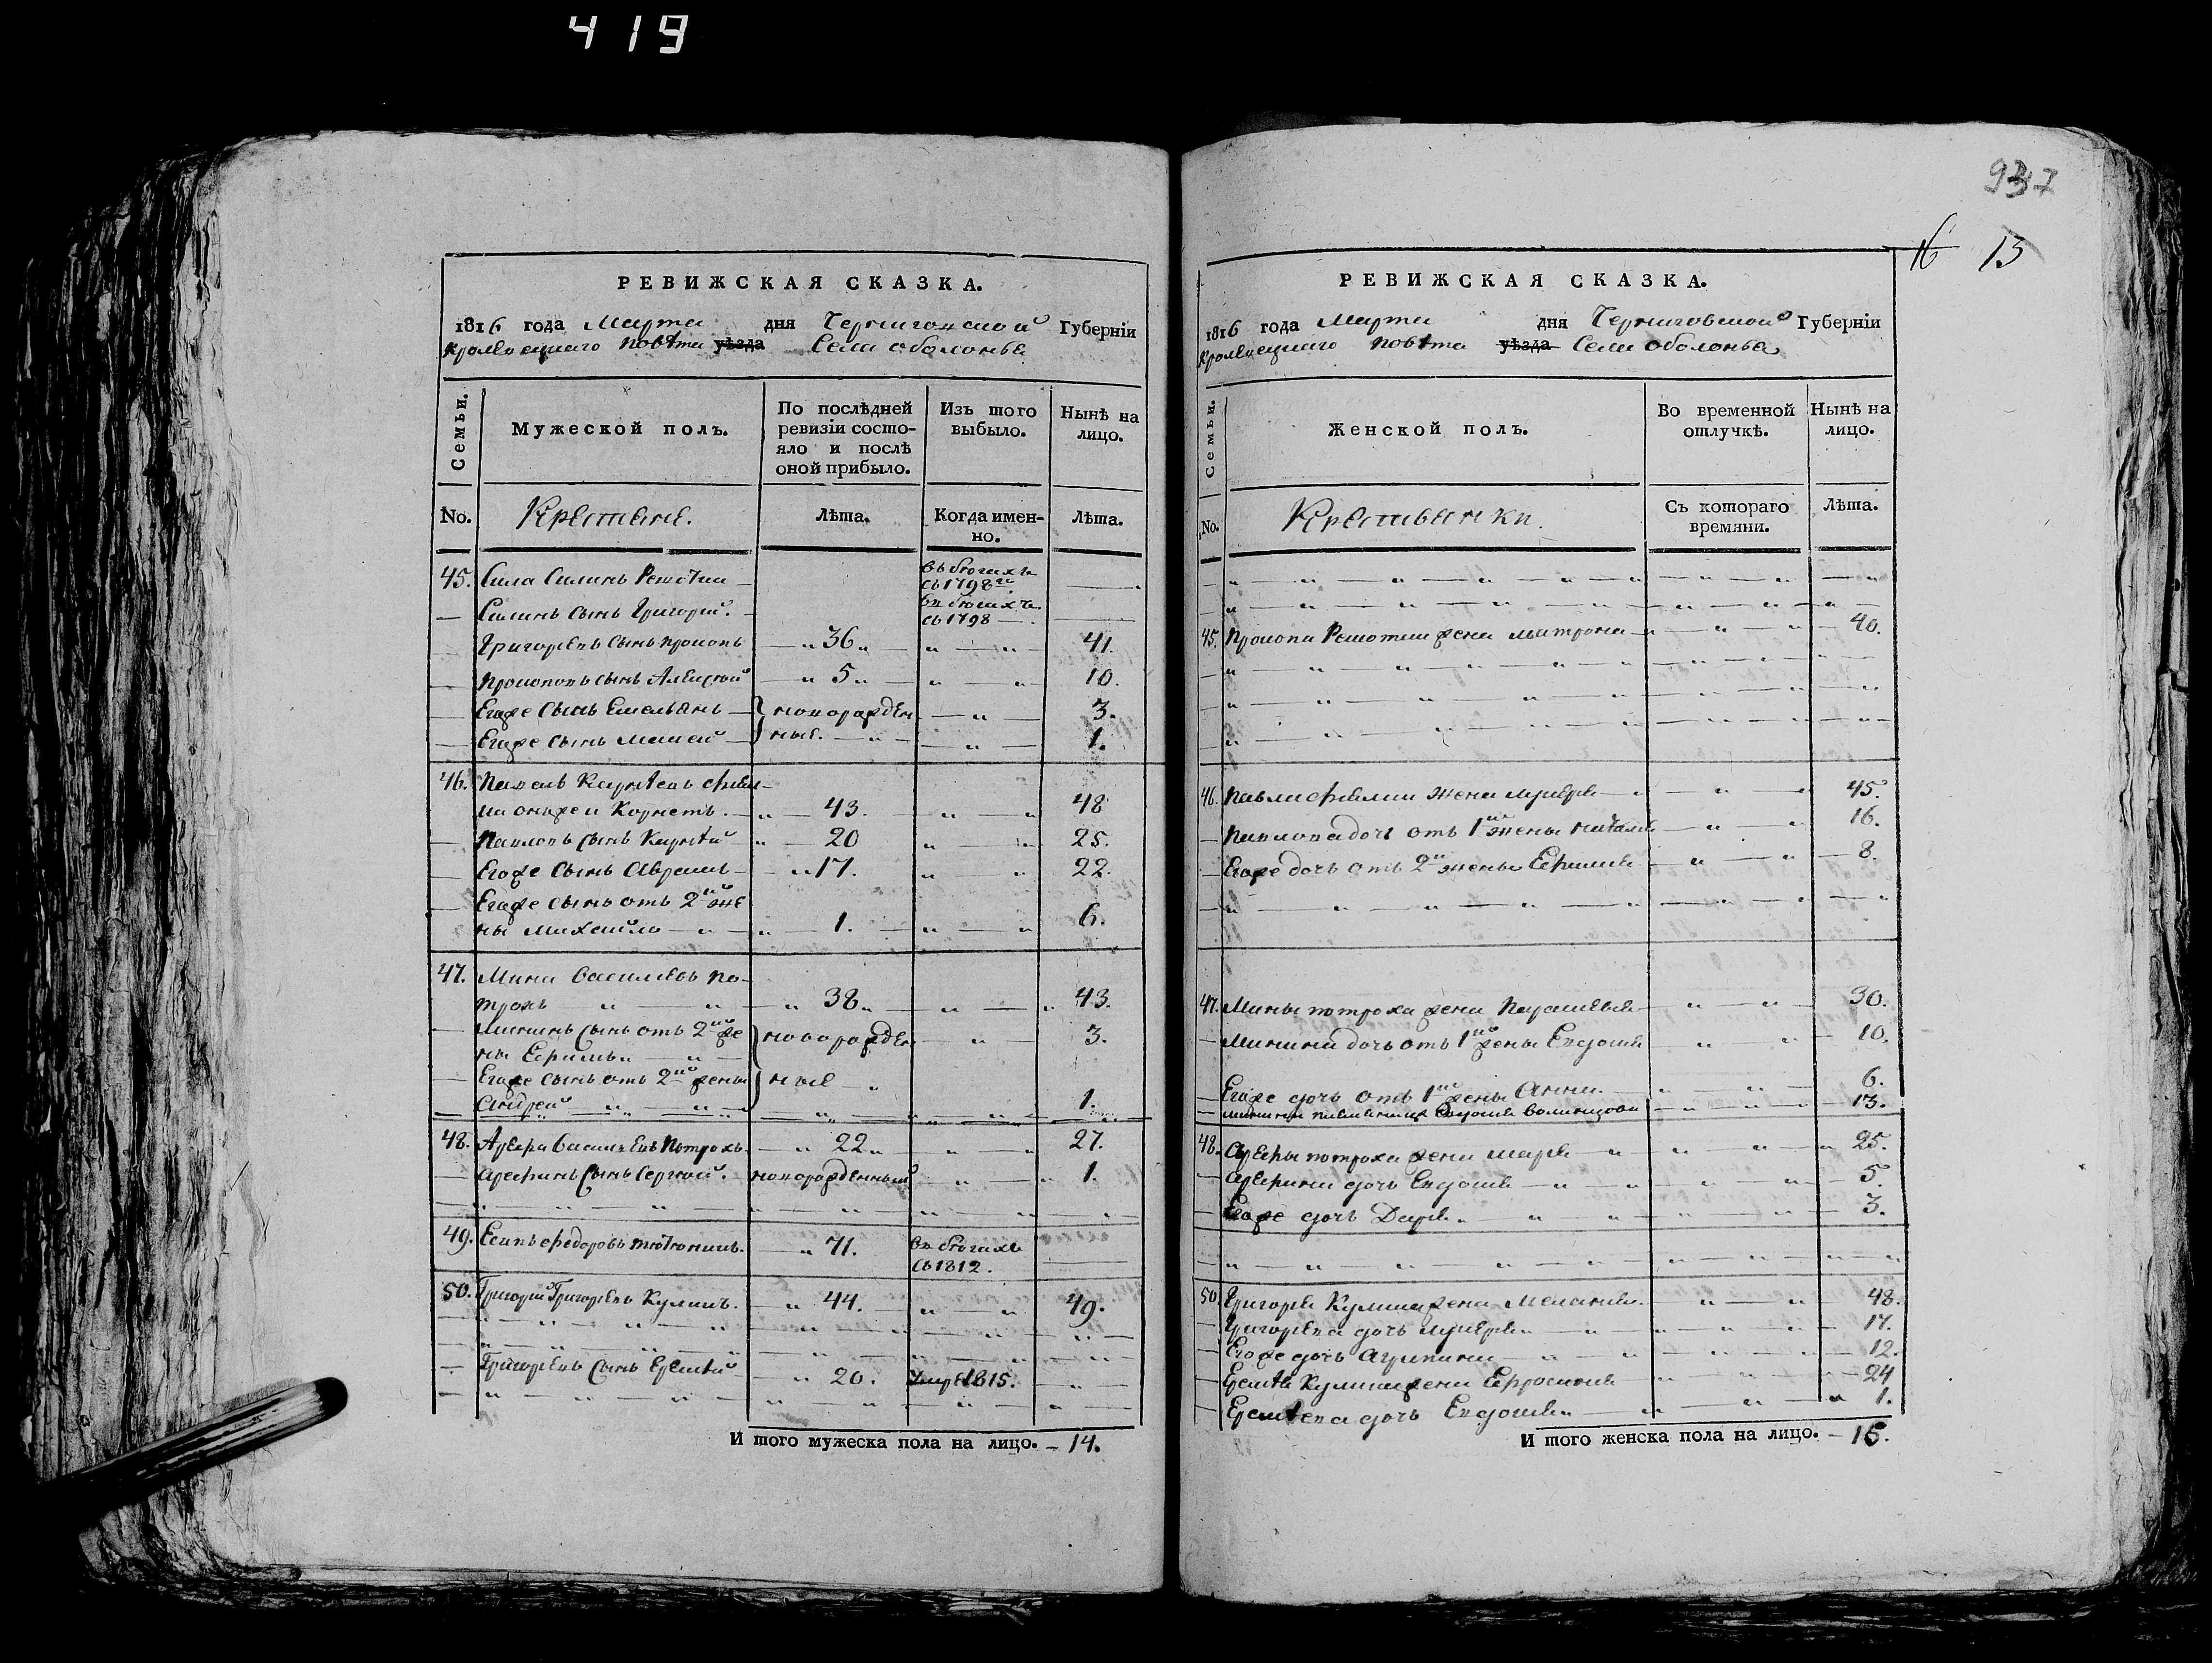 419
937
16 13
РЕВИЖСКАЯ СКАЗКА.
1816 года Марта дня Черниговской Губернїи
Кролевецкаго повѣта уѣзда Села Оболонья
Семьи.
Мужеской полъ.
По послѣдней ревизїи состо-
яло и послѣ
оной прибыло.
Изъ того выбыло.
Нынѣ на лицо.
No.
Крестьяне.
Лѣта.
Когда имен-
но.
Лѣта.
45. Сила Силинъ
въ бѣгахъ
съ 1798го
Силинъ сынъ Григорий.
въ бѣгахъ
съ 1798
Григорьевъ сынъ Прокопъ 36 41.
Прокоповъ сынъ Алексѣй 5 10.
Егоже сынъ Емельянъ новорожден 3.
Егоже сынъ ные. 1.
46. Павелъ
Корнетъ. 43. 48
Павловъ сынъ 20 25.
Егоже сынъ Аврамъ 17. 22.
Егоже сынъ отъ 2й же
ны Михайло 1. 6.
47. Мина Васильевъ По-
трохъ 38 43.
Мининъ сынъ отъ 2й же новорожден 3.
ны
Егоже сынъ отъ 2й жены ные
Андрей 1.
48. Васильевъ Потрохъ 22 27.
сынъ Сергѣй. новорожденный 1.
49. Есипъ Федоровъ 71. въ бѣгахъ
съ 1812.
50. Григорий Григорьевъ Кулишъ. 44. 49.
Григорьевъ сынъ Еремѣй 20. умре 1815.
И того мужеска пола на лицо. 14.
РЕВИЖСКАЯ СКАЗКА.
1816 года Марта дня Черниговской Губернїи
Кролевецкаго повѣта уѣзда Села Оболонья
Семьи.
Женской полъ.
Во временной отлучкѣ.
Нынѣ на лицо.
No.
Крестьянки.
Съ котораго времяни.
Лѣта.
45. Прокопа жена Матрона 40.
46. Павла жена 45.
Павлова дочь отъ 1й жены Наталья 16.
Егоже дочь отъ 2й жены 8.
47. Мины Потроха жена 30.
Минина дочь отъ 1й жены Евдокия 10.
Егоже дочь отъ 1й жены Анна 6.
Минина Евдокия 13.
48. Потроха жена Марья 25.
дочь Евдокия 5.
Егоже дочь Дарья 3.
50. Григорья Кулиша жена Мелания 48.
Григорьева дочь 17.
Егоже дочь Агрипина 12.
Еремѣя Кулиша жена Ефросиния 24
Еремѣева дочь Евдокия 1.
И того женска пола на лицо. 15.